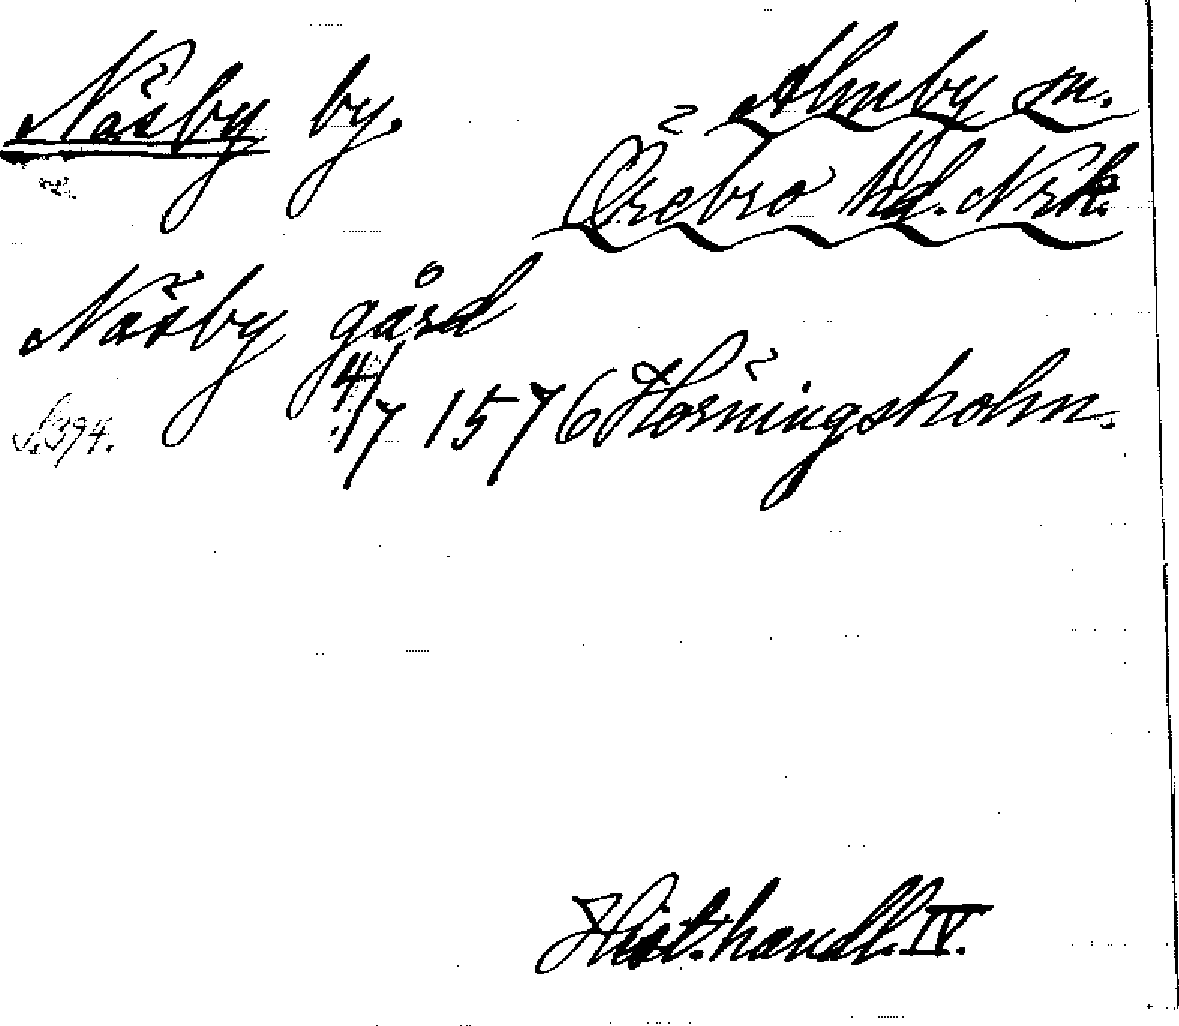 Näsby by. Almby sn.
Örebro hd. Nrk.
Näsby gård
S. 394. 4/7 1576 Hörningsholm.
Hist. handl. IV.